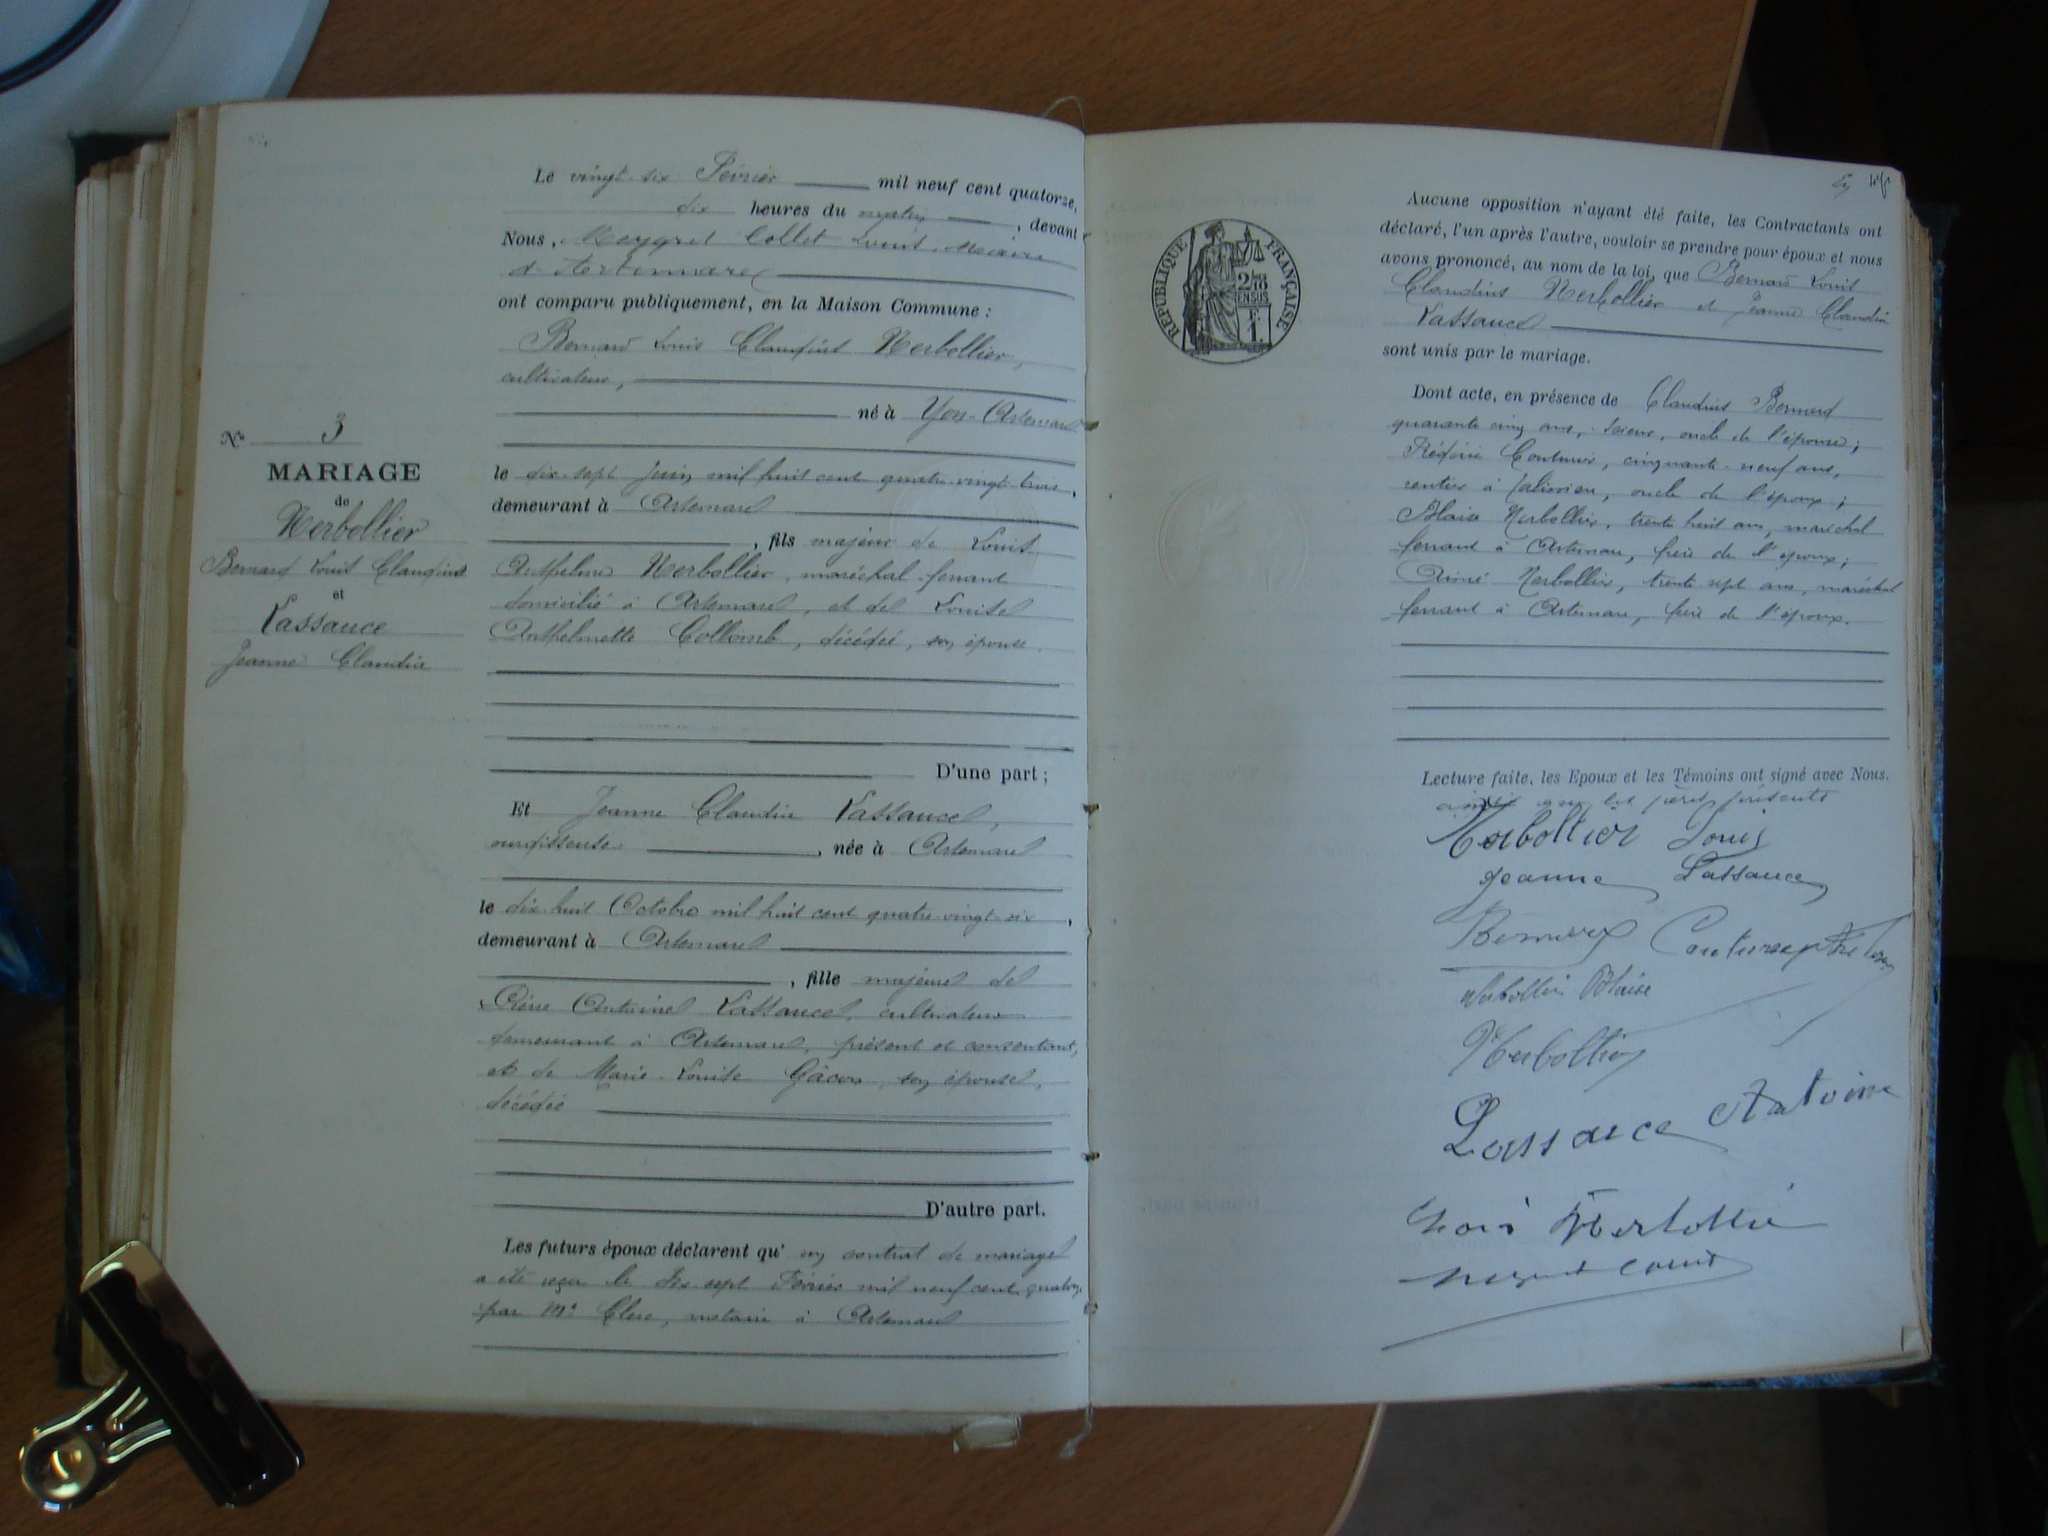 Le vingt-six Février mil neuf cent quatorze,
dix heures du matin, devant
Nous, Meygret Collet Louis, Maire
d'Artemare
ont comparu publiquement, en la Maison Commune :
Bernard Louis Claudius Nerbollier,
cultivateur,
né à Yon-Artemare
le dix-sept Juin mil huit cent quatre-vingt-trois,
demeurant à Artemare
, fils majeur de Louis
Anthelme Nerbollier, maréchal-ferrant
domicilié à Artemare, et de Louise
Anthelmette Collomb, décédée, son épouse.
D'une part ;
Et Jeanne Claudia Lassauce,
ourdisseuse, née à Artemare
le dix-huit Octobre mil huit cent quatre-vingt-six,
demeurant à Artemare
, fille majeure de
Pierre Antoine Lassauce, cultivateur
demeurant à Artemare, présent et consentant,
et de Marie-Louise Gâcon, son épouse,
décédée
D'autre part.
Les futurs époux déclarent qu'un contrat de mariage
a été reçu le dix-sept Février mil neuf cent quatorze
par Me Clerc, notaire à Artemare
No 3
MARIAGE
de
Nerbollier
Bernard Louis Claudius
et
Lassauce
Jeanne Claudia
RÉPUBLIQUE FRANÇAISE
2/10
EN SUS
F.
1.
Aucune opposition n'ayant été faite, les Contractants ont
déclaré, l'un après l'autre, vouloir se prendre pour époux et nous
avons prononcé, au nom de la loi, que Bernard Louis
Claudius Nerbollier et Jeanne Claudia
Lassauce
sont unis par le mariage.
Dont acte, en présence de Claudius Bernard
quarante cinq ans, scieur, oncle de l'épouse ;
Couturier, cinquante-neuf ans,
rentier à Talissieu, oncle de l'époux ;
Blaise Nerbollier, trente huit ans, maréchal
ferrant à Artemare, frère de l'époux ;
Aimé Nerbollier, trente sept ans, maréchal
ferrant à Artemare, frère de l'époux.
Lecture faite, les Epoux et les Témoins ont signé avec Nous.
ainsi que les pères présents
Nerbollier Louis
Jeanne Lassauce
Bernard
Nerbollier Blaise
Nerbollier
Lassauce Antoine
Louis Nerbollier